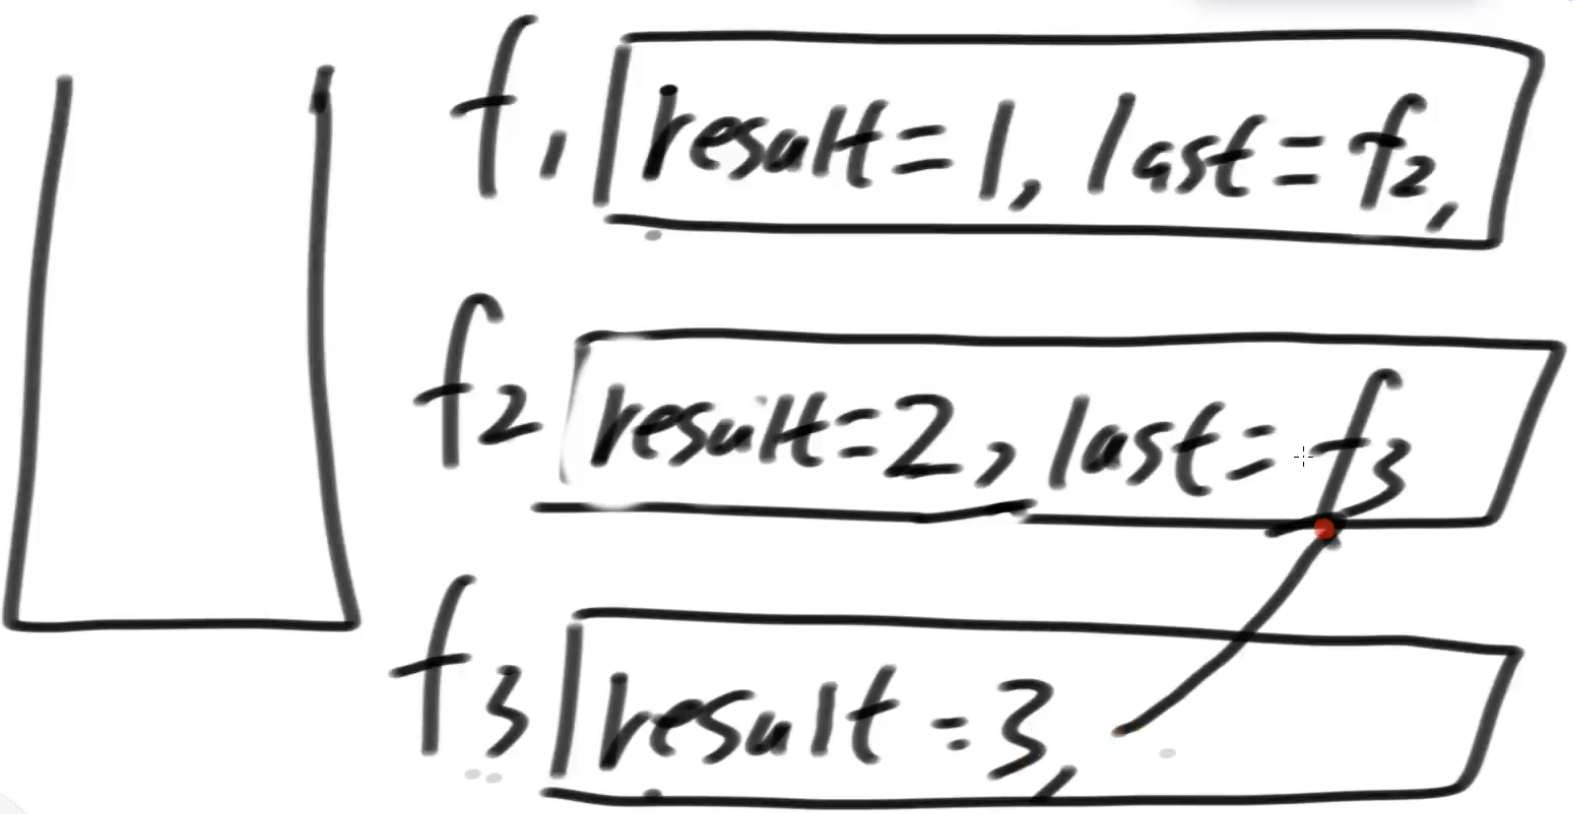 f1 result=1, last=f2,
f2 result=2, last=f3
f3 result=3,